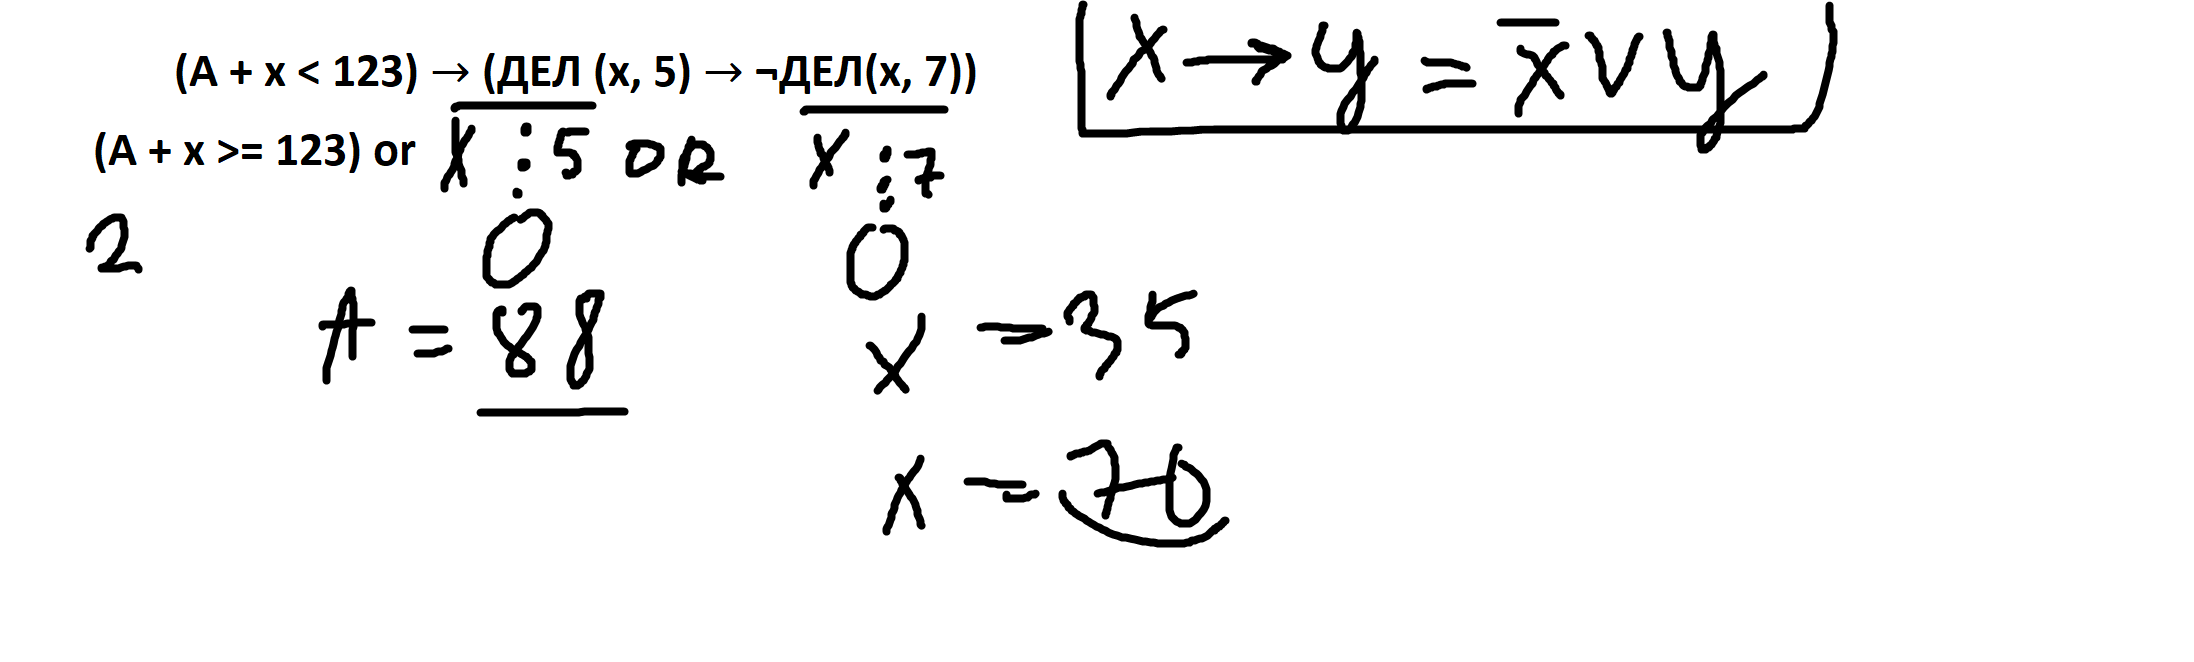 (А + x < 123) → (ДЕЛ (x, 5) → ¬ДЕЛ(x, 7))
x → y = x̅ ∨ y
(A + x >= 123) or x ⋮ 5 OR x ⋮ 7
2
0 0
A = 88
x = 35
x = 70